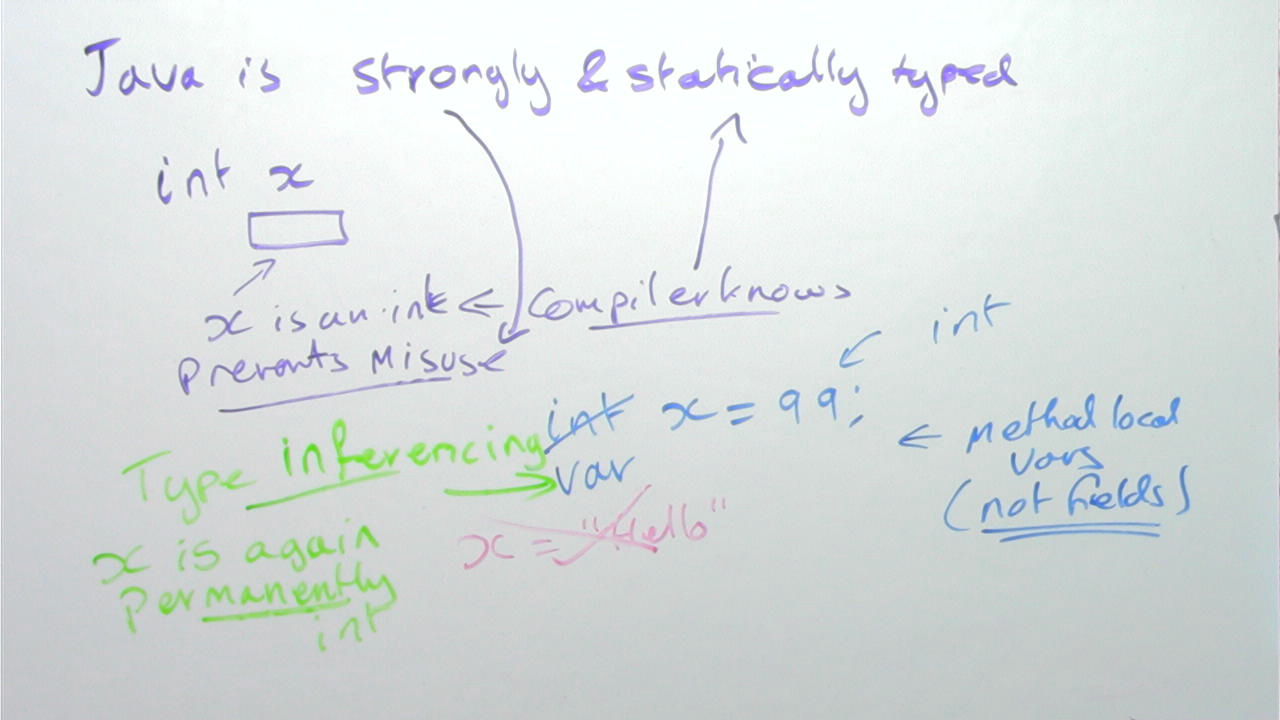 Java is strongly & statically typed
int x
x is an int ← Compiler knows
Prevents Misuse
int
int x = 99;
← Method local
vars
(not fields)
Type inferencing → var
x = "Hello"
x is again
permanently
int